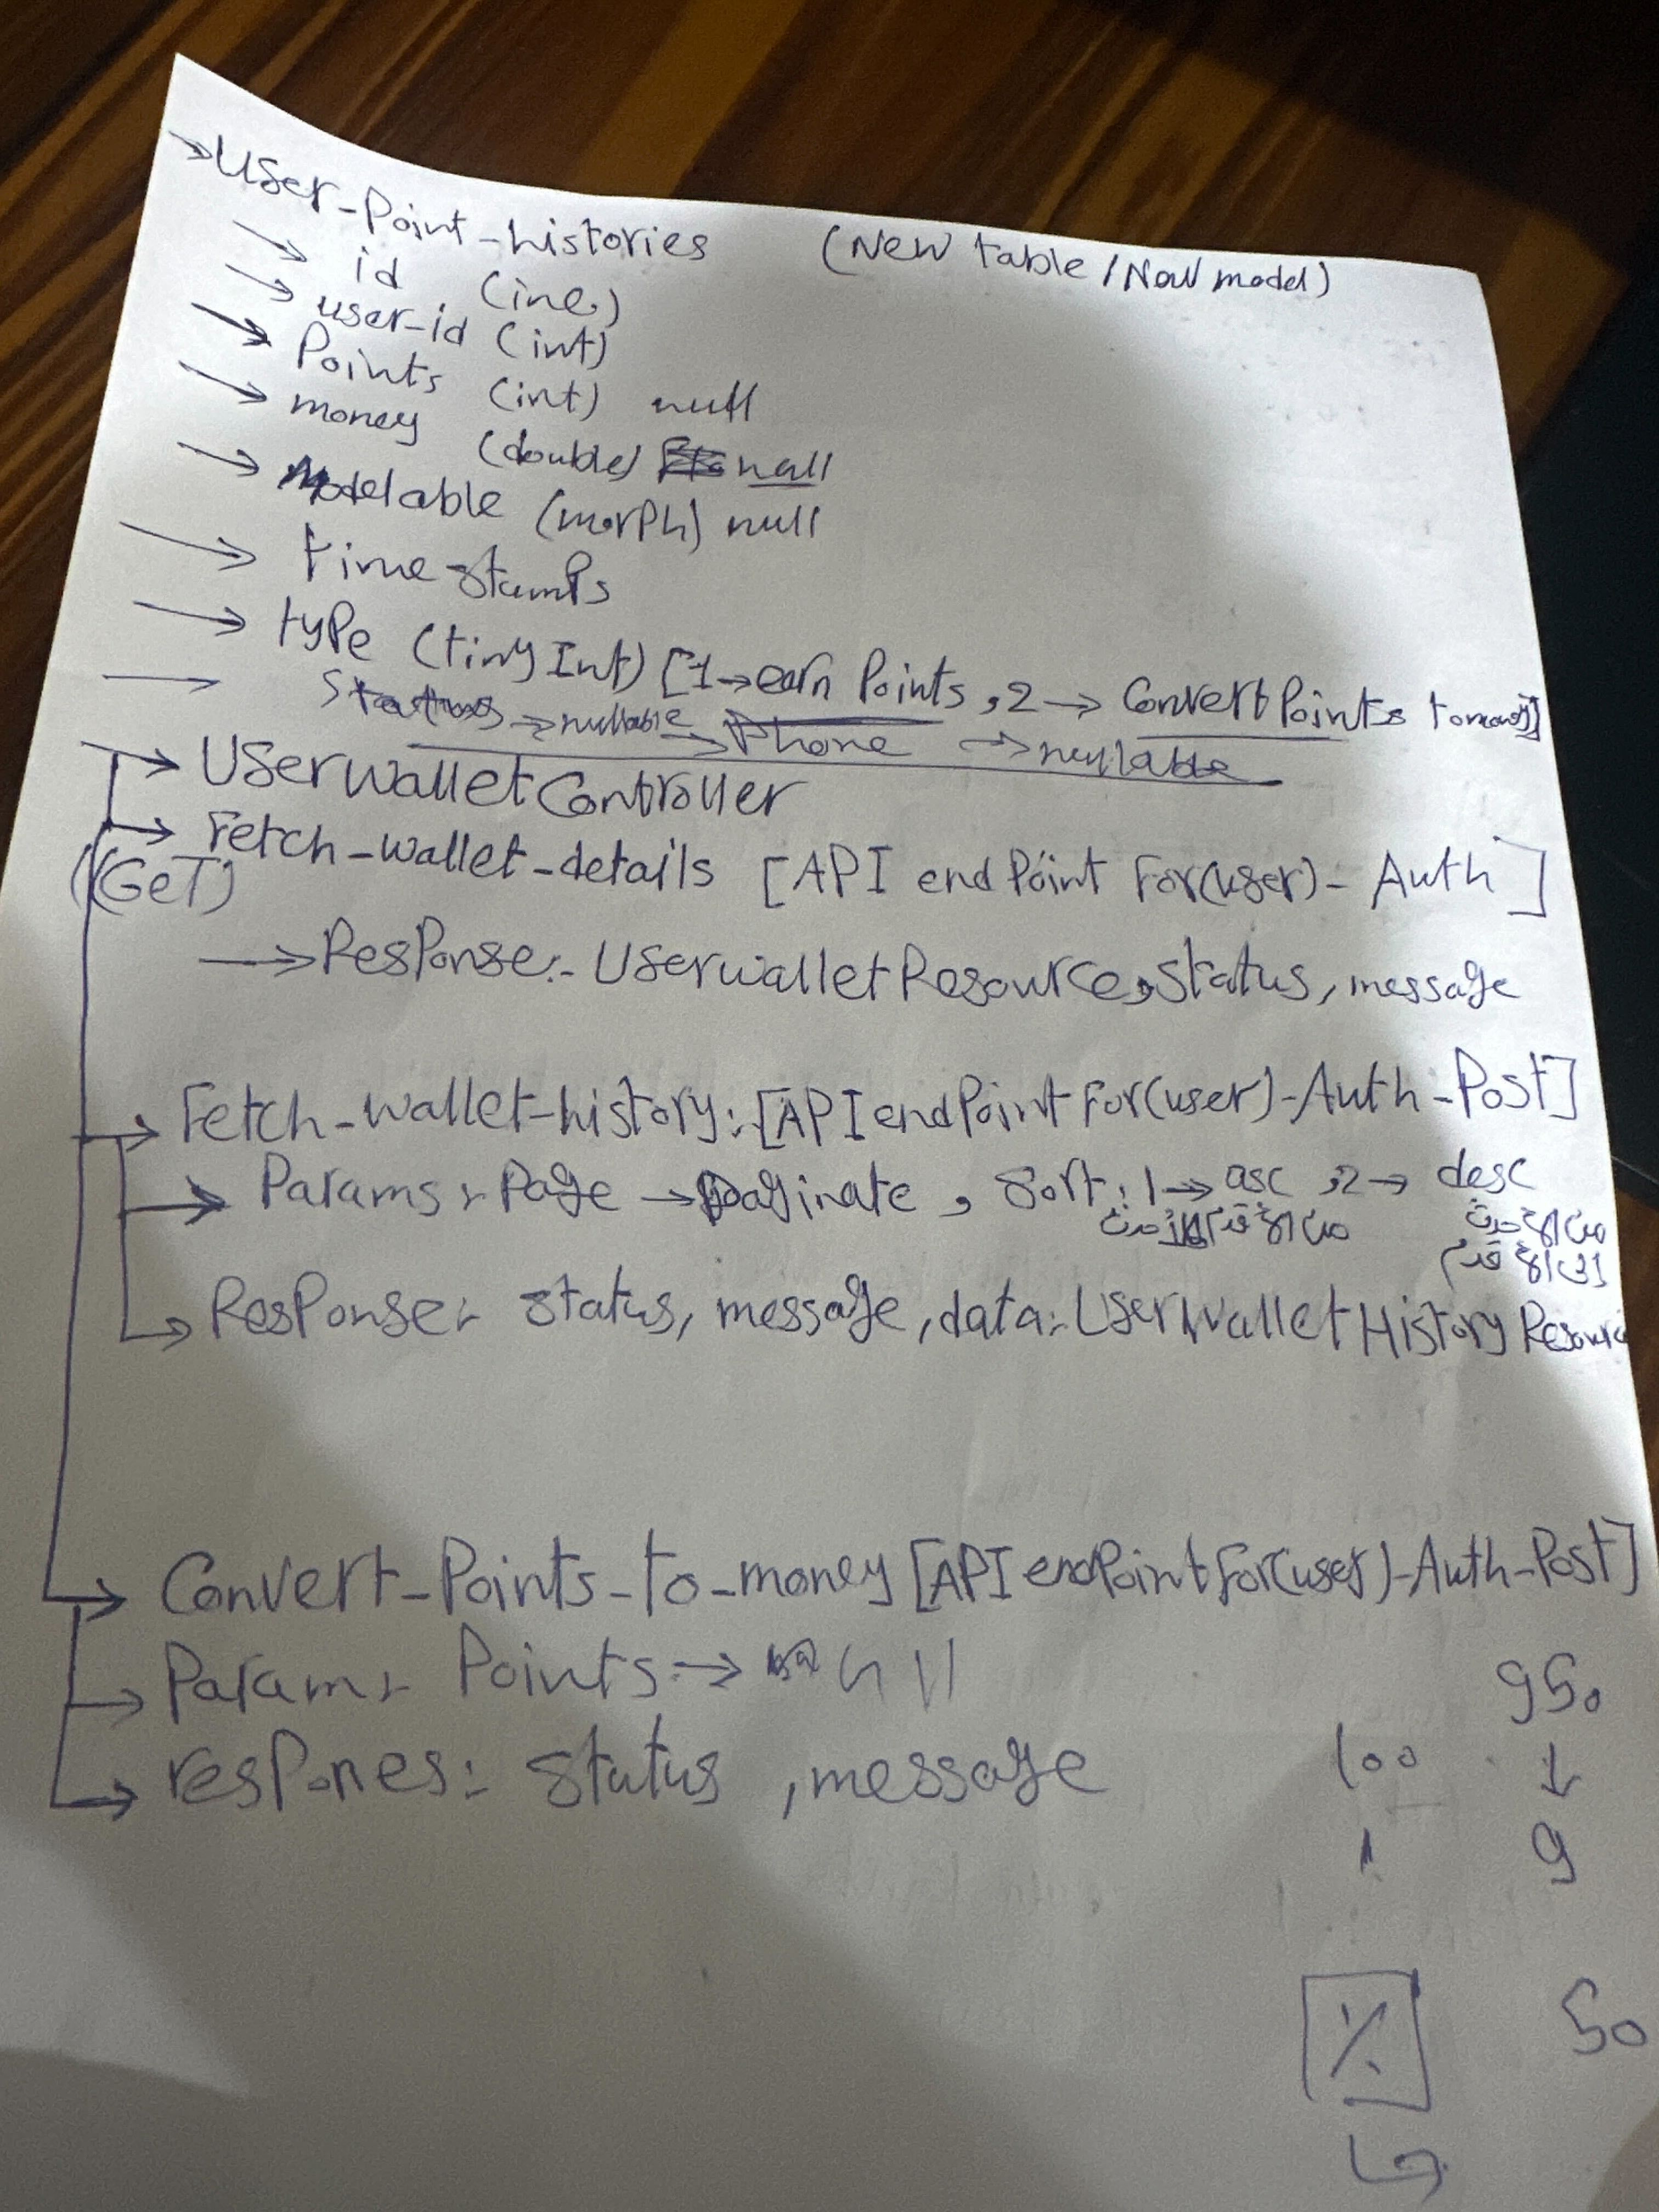 → User-Point-histories (New table / New model)
→ id (inc.)
→ user-id (int)
→ Points (int) null
→ money (double) null
→ Modelable (morph) null
→ timestamps
→ type (tinyInt) [1→earn Points, 2→ Convert Points to money]
→ Status → nullable → Phone → nullable
→ UserwalletController
→ Fetch-wallet-details [API endPoint For(user)- Auth]
(GeT)
→ Response:- UserwalletResource, status, message
→ Fetch-wallet-history: [API endPoint For(user)-Auth-Post]
→ Params:- Page → paginate, sort: 1→ asc, 2→ desc
من الأقدم للأحدث
من الأحدث
إلى الأقدم
→ Response:- status, message, data:- UserWalletHistoryResource
→ Convert-Points-to-money [API endPoint for(user)-Auth-Post]
→ Param:- Points:→
→ respones:- status, message
950
100 ↓
1 9
%
50